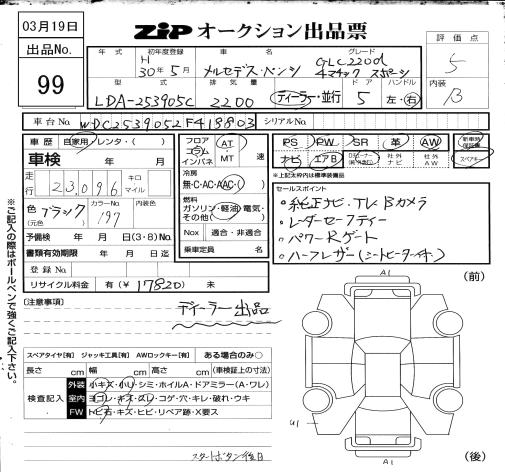 03月19日
出品No.
99
ZiP オークション出品票
評価点
5
内装
B
年式 初年度登録 車名 グレード
H 30年5月 メルセデス・ベンツ GLC220d
4マチック スポーツ
型式 排気量 ドア ハンドル
LDA-253905C 2200 ディーラー・並行 5 左・右
車台No. WDC2539052F418803 シリアルNo.
車歴 自家用・レンタ・( )
車検 年 月
走行 23,096 キロ マイル
色 ブラック (元色)
カラーNo. 197
予備検 年 月 日(3・8)No.
書類有効期限 年 月 日迄
登録No.
リサイクル料金 有(¥17820) 未
フロア コラム インパネ
AT
MT 速
冷房
無・C・AC・AAC・( )
燃料
ガソリン・軽油・電気・
その他( )
Nox 適合・非適合
乗車定員 名
PS PW SR 革 AW
ナビ エアB 社外ナビ 社外AW
新車時保証書
スペアキー
※上記太枠内は標準装備品
セールスポイント
・純正ナビ.TV.Bカメラ
・レーダーセーフティー
・パワーRゲート
・ハーフレザー(シートヒーター付)
※ご記入の際はボールペンで強くご記入下さい。
(注意事項)
ディーラー出品
スペアタイヤ[有] ジャッキ工具[有] AWロックキー[有] ある場合のみ○
長さ cm 幅 cm 高さ cm (車検証上の寸法)
検査記入
外装 小キズ・小U・シミ・ホイルA・ドアミラー(A・ワレ)
室内 ヨゴレ・キズ・スレ・コゲ・穴・キレ・破れ・ウキ
FW トビ石・キズ・ヒビ・リペア跡・X要ス
スタートボタン後日
A1
(前)
U1
A1
(後)